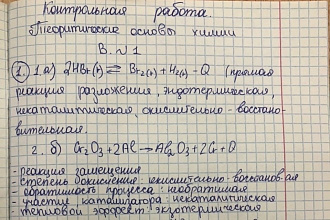 Контрольная работа.
Теоритические основы химии
В. №1
1. 1.а) 2HBr(г) ⇌ Br2(г) + H2(г) - Q (прямая
реакция разложения, эндотермическая,
некаталитическая, окислительно-восстано-
вительная.
2. б) Cr2O3 + 2Al → Al2O3 + 2Cr + Q
- реакция замещения
- степень окисления: окислительно-восстановит-ая
- обратимость процесса: необратимая
- участие катализатора: некаталитическая
- тепловой эффект: экзотермическая